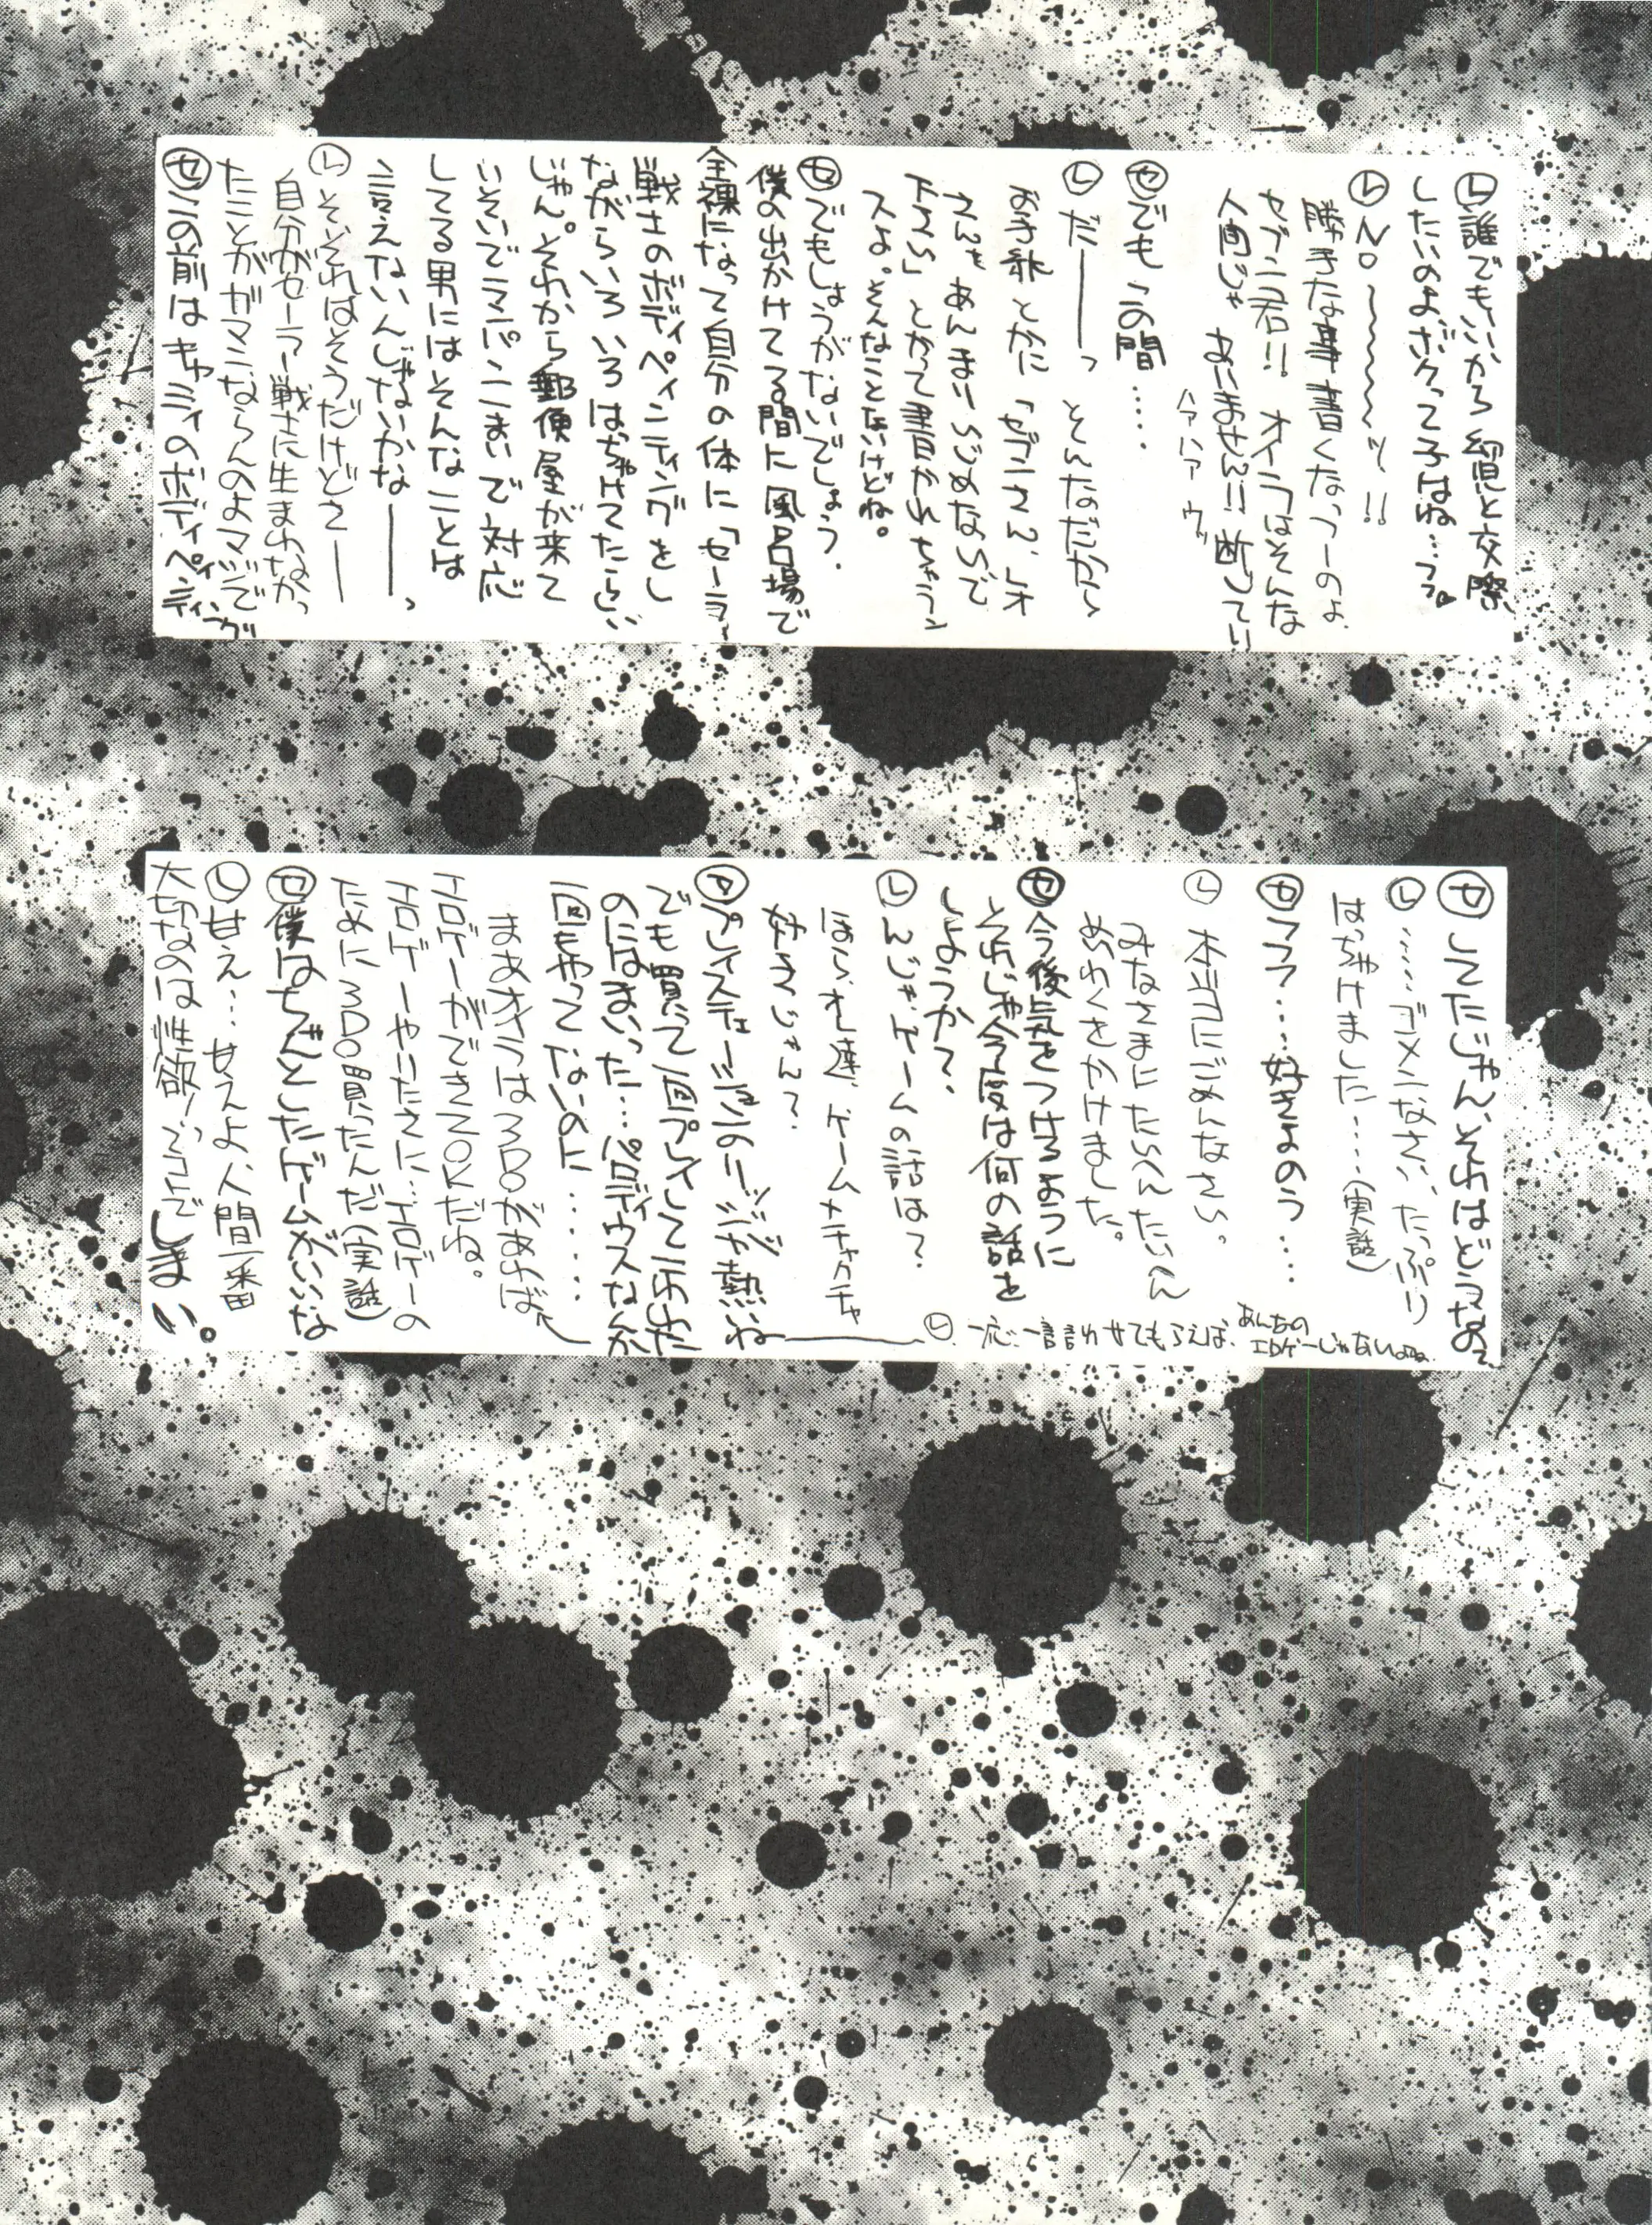 ㋹誰でもいいから幼児と交際
したいのよ。ボクって子はね…フフ。
㋹NO～～～～ッ!!
勝手な事書くなっつーのよ
セブン君!! オイラはそんな
人間じゃありません!! 断じてい
ハァハァ ウッ
㋝でも この間‥‥
㋹だ――っ そんなだから
お手紙とかに「セブンさん、レオ
さんをあんまりいじめないで
下さい」とかって書かれちゃうン
スよ。そんなことないけどね。
㋝でもしょうがないでしょう.
僕の出かけてる間に風呂場で
全裸になって自分の体に「セーラー
戦士のボディペインティングをし
ながらいろいろはっちゃけてたらしい
じゃん。それから郵便屋が来て
いそいでマンパン一まいで対応
してる男にはそんなことは
言えないんじゃないかな――っ
㋹そ、それはそうだけどさ――
自分がセーラー戦士に生まれなかっ
たことがガマンならんのよマジで
㋝この前はキャミィのボディペインティング
㋝してたじゃん、それはどうなの?
㋹……ゴメンなさい、たっぷり
はっちゃけました……(実話)
㋝フフフ…好きよのう…
㋹本当にごめんなさい。
みなさまにたいへんたいへん
めいわくをかけました。
㋝今後気をつけるように
それじゃ今度は何の話を
しようか?
㋹んじゃゲームの話は?
ほら、オレ達、ゲームメチャクチャ
好きじゃん?
㋝プレイステーションのリッジが熱いね
でも買って一回プレイしてこわれた
のにはまいった…パロディウスなんか
一回もやってないのに……
まあオイラは3DOがあれば
エロゲーができてOKだね。
エロゲーやりたさに…エロゲーの
ために3DO買ったんだ(実話)
㋝僕はちゃんとしたゲームがいいな
㋹甘え…甘えよ、人間一番
大切なのは性欲!ってコトでしまい。
㋹一応一言言わせてもらえば、あんなの
エロゲーじゃないよね